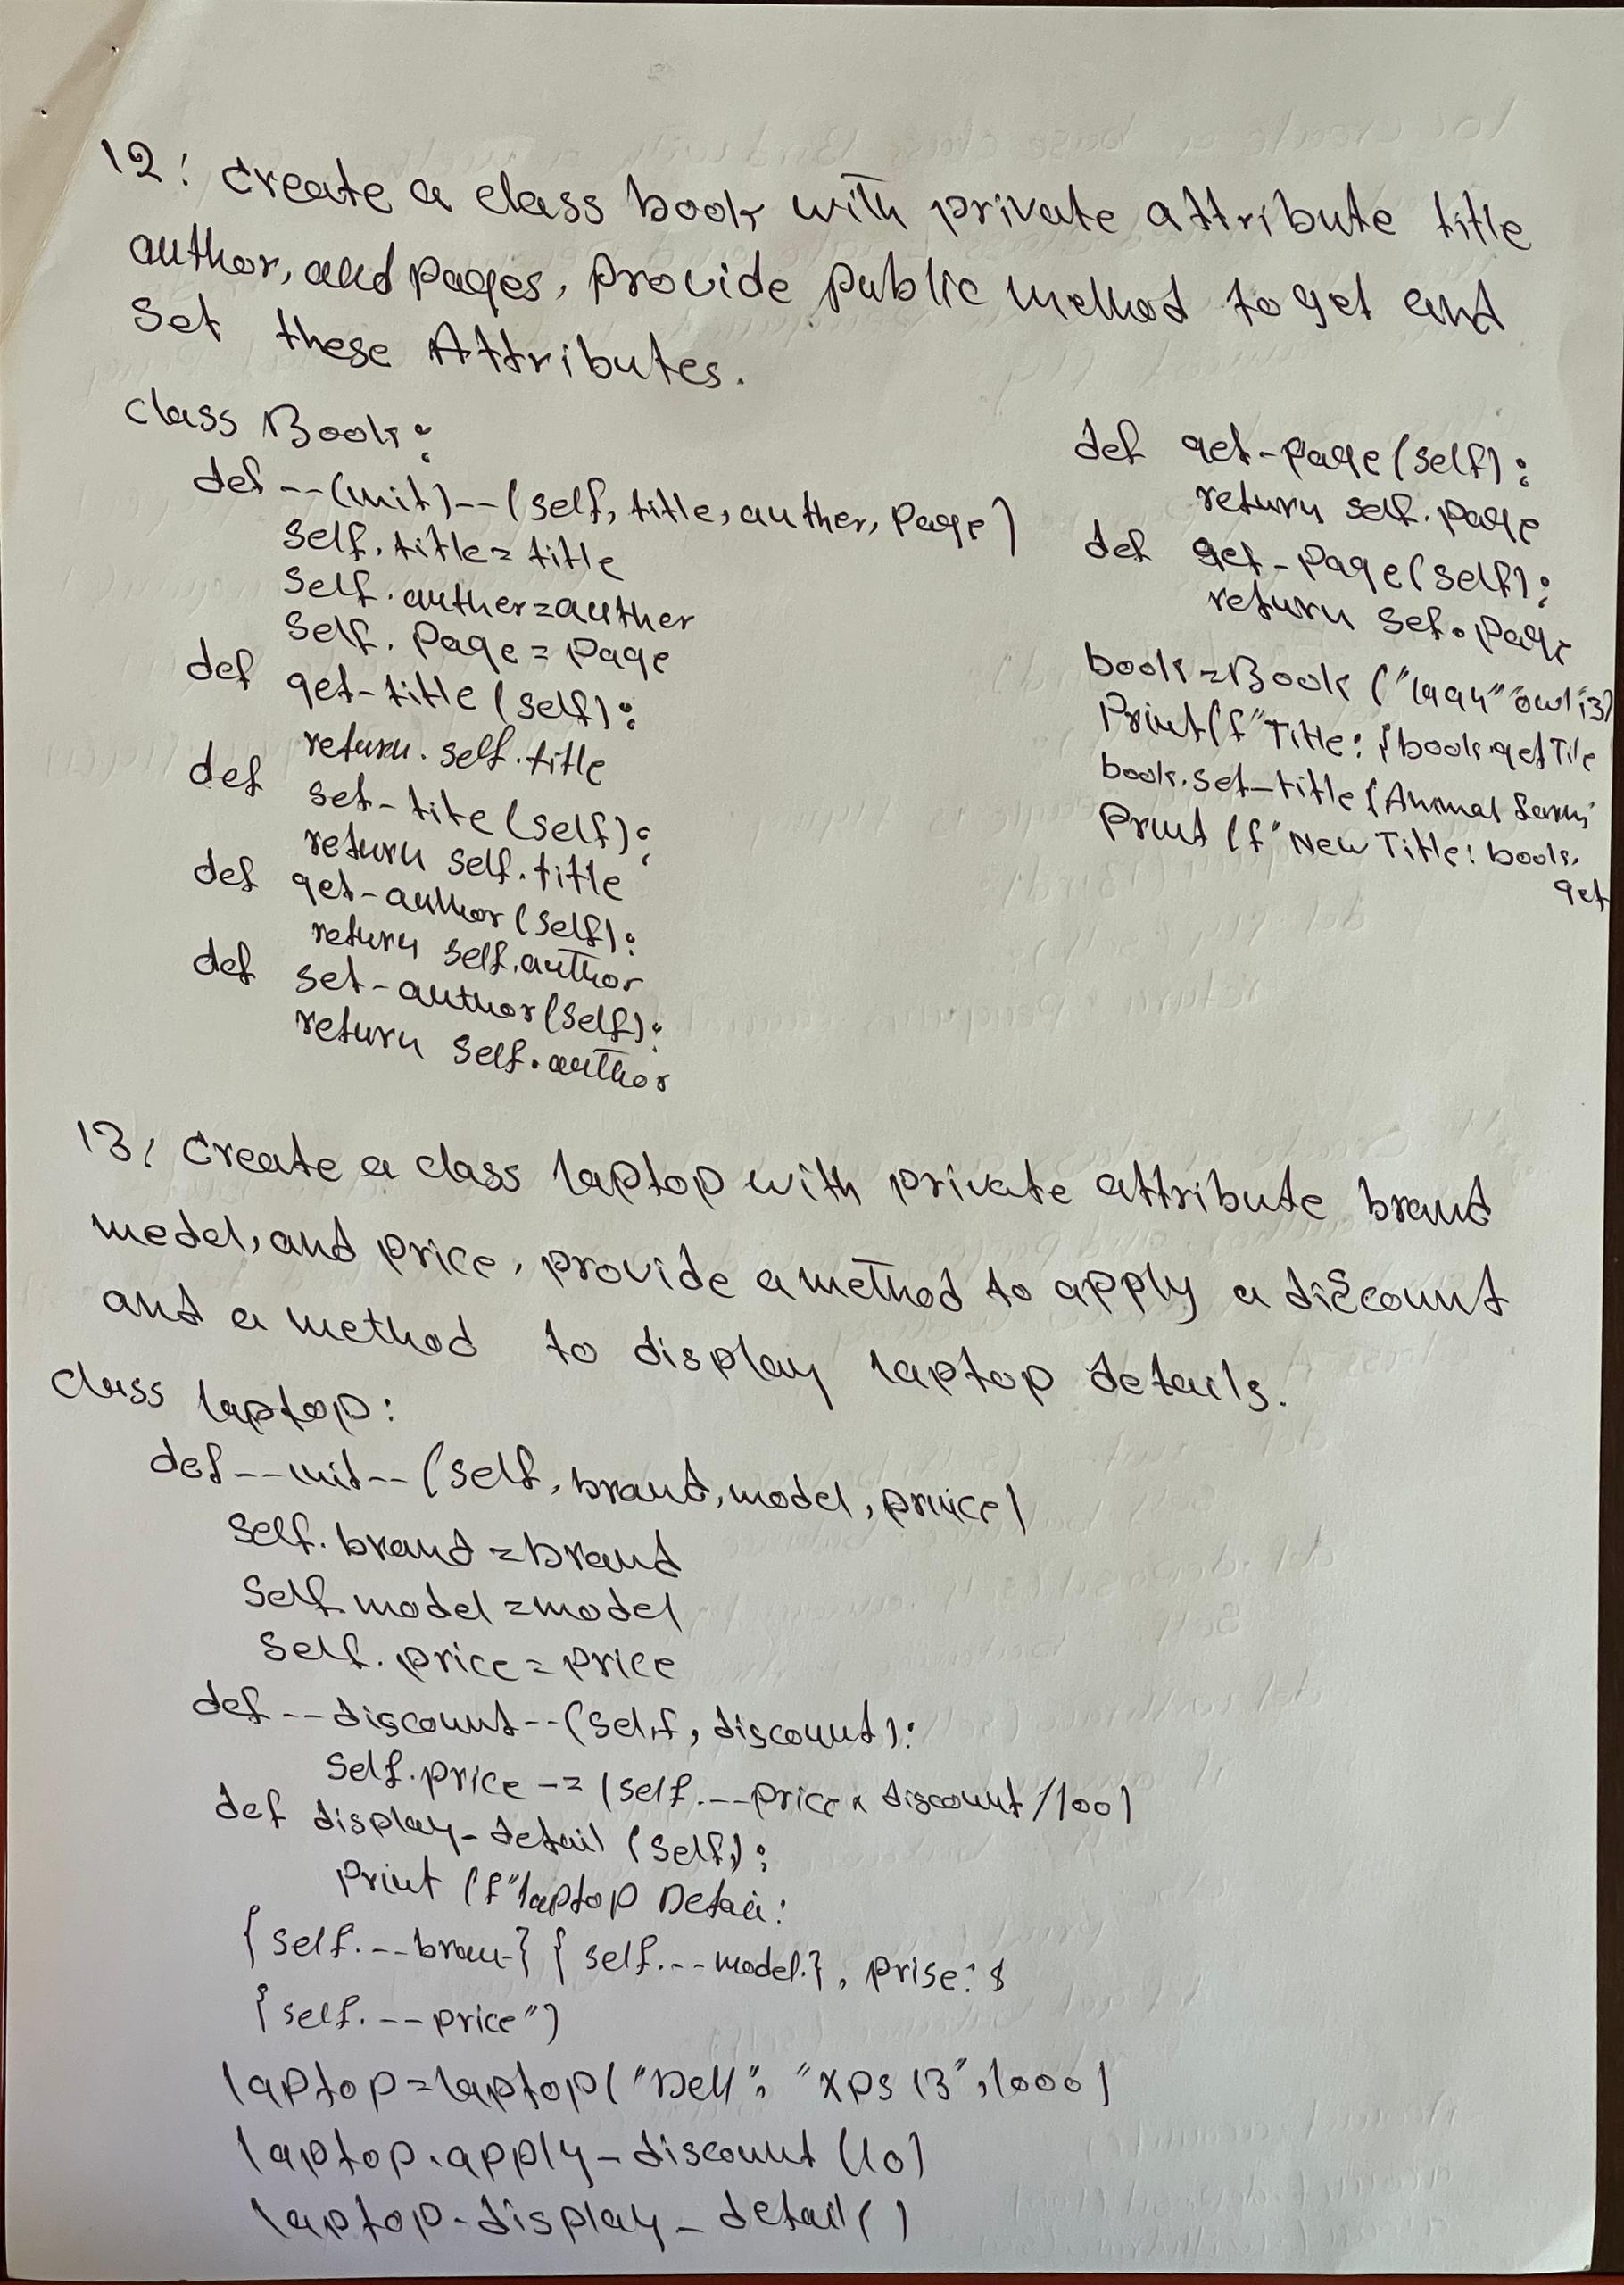 12: create a class book with private attribute title
author, and pages, provide public method to get and
set these Attributes.
class Book:
def --(init)--(self, title, auther, Page)
self.title=title
self.auther=auther
self.Page=Page
def get-title(self):
return.self.title
def set-tite(self):
return self.title
def get-author(self):
return self.author
def set-author(self):
return self.author
def get-page(self):
return self.page
def get-Page(self):
return sef.page
book=Book("1994"
Print(f"Title:{book.getTile
book.set-title(Animal farm
Print(f"New Title: book.
get
13: Create a class laptop with private attribute brand
medel, and price, provide a method to apply a discount
and a method to display laptop details.
class laptop:
def--init--(self, brand, model, priice)
self.brand=brand
self model=model
self.price=price
def--discount--(self, discount):
self.price-=(self.--price x discount/100)
def display-detail(self):
Print(f"laptop Detail:
{self.--bran-}{self.--model.}, prise:$
{self.--price")
laptop=laptop("Dell", "XPS 13",1000)
laptop.apply-discount(10)
laptop.display-detail()